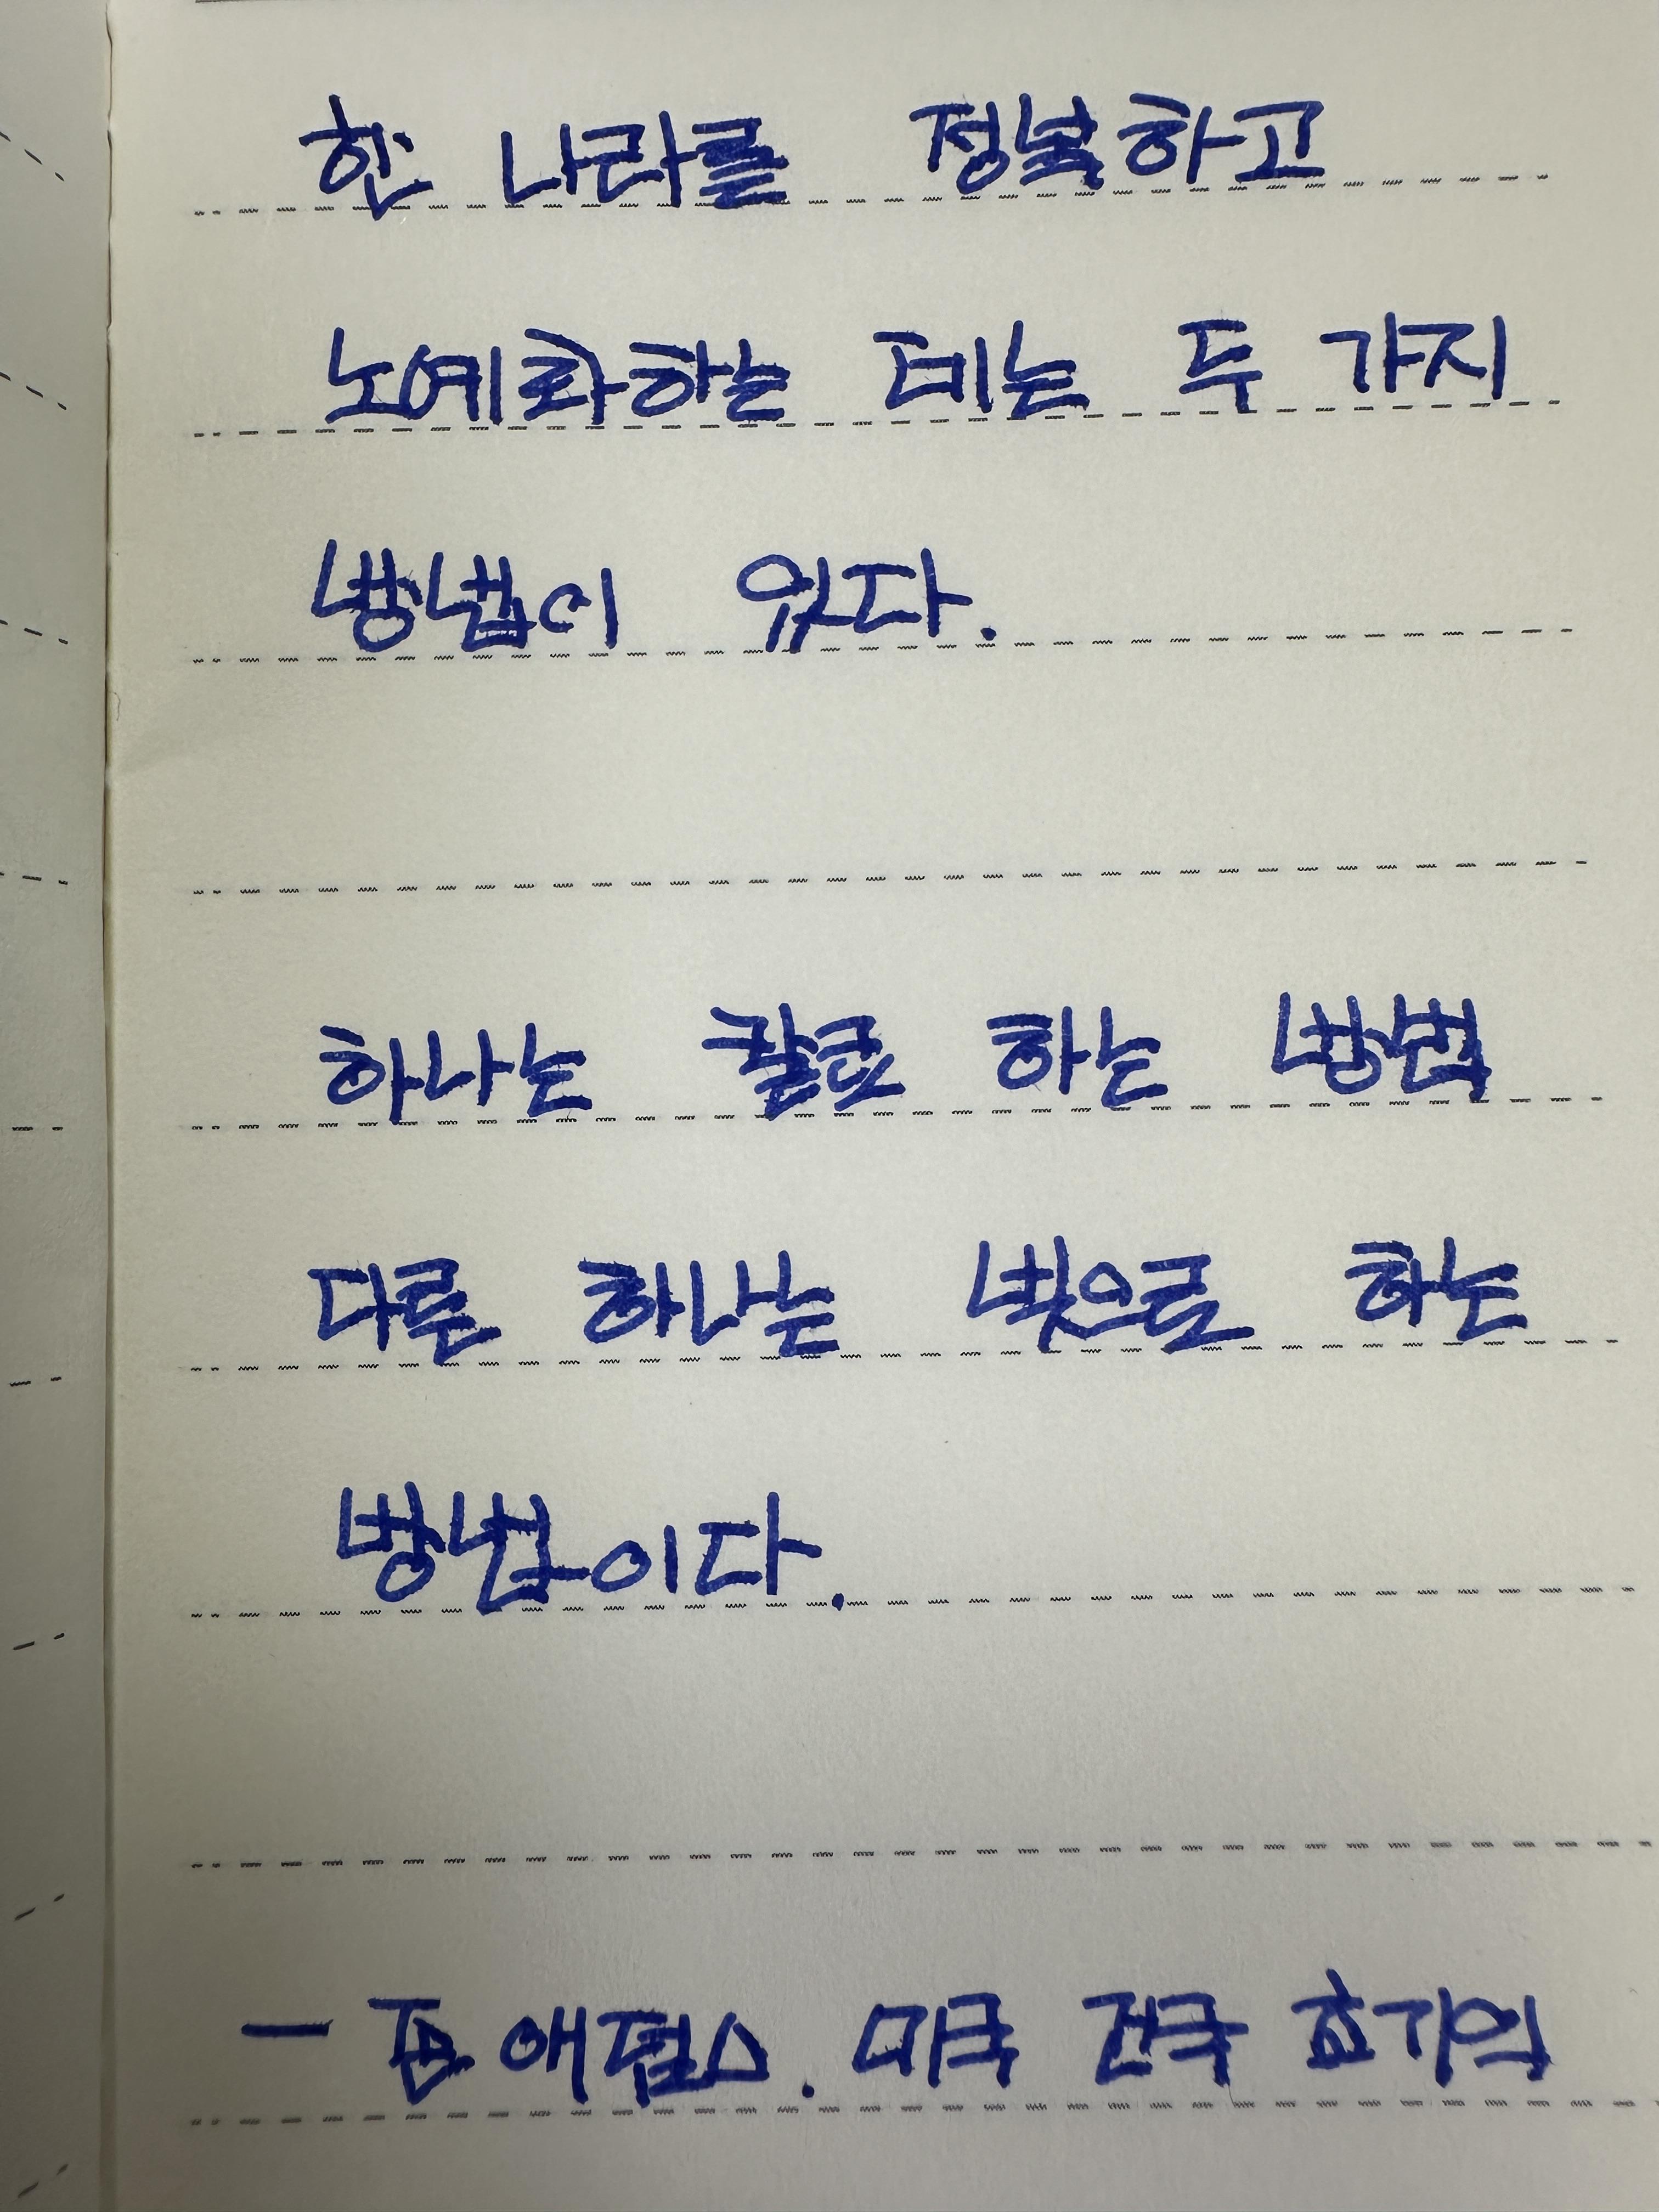 한 나라를 정복하고
노예화하는 데는 두 가지
방법이 있다.
하나는 칼로 하는 방법
다른 하나는 빚으로 하는
방법이다.
- 존 애덤스. 미국 건국 초기의